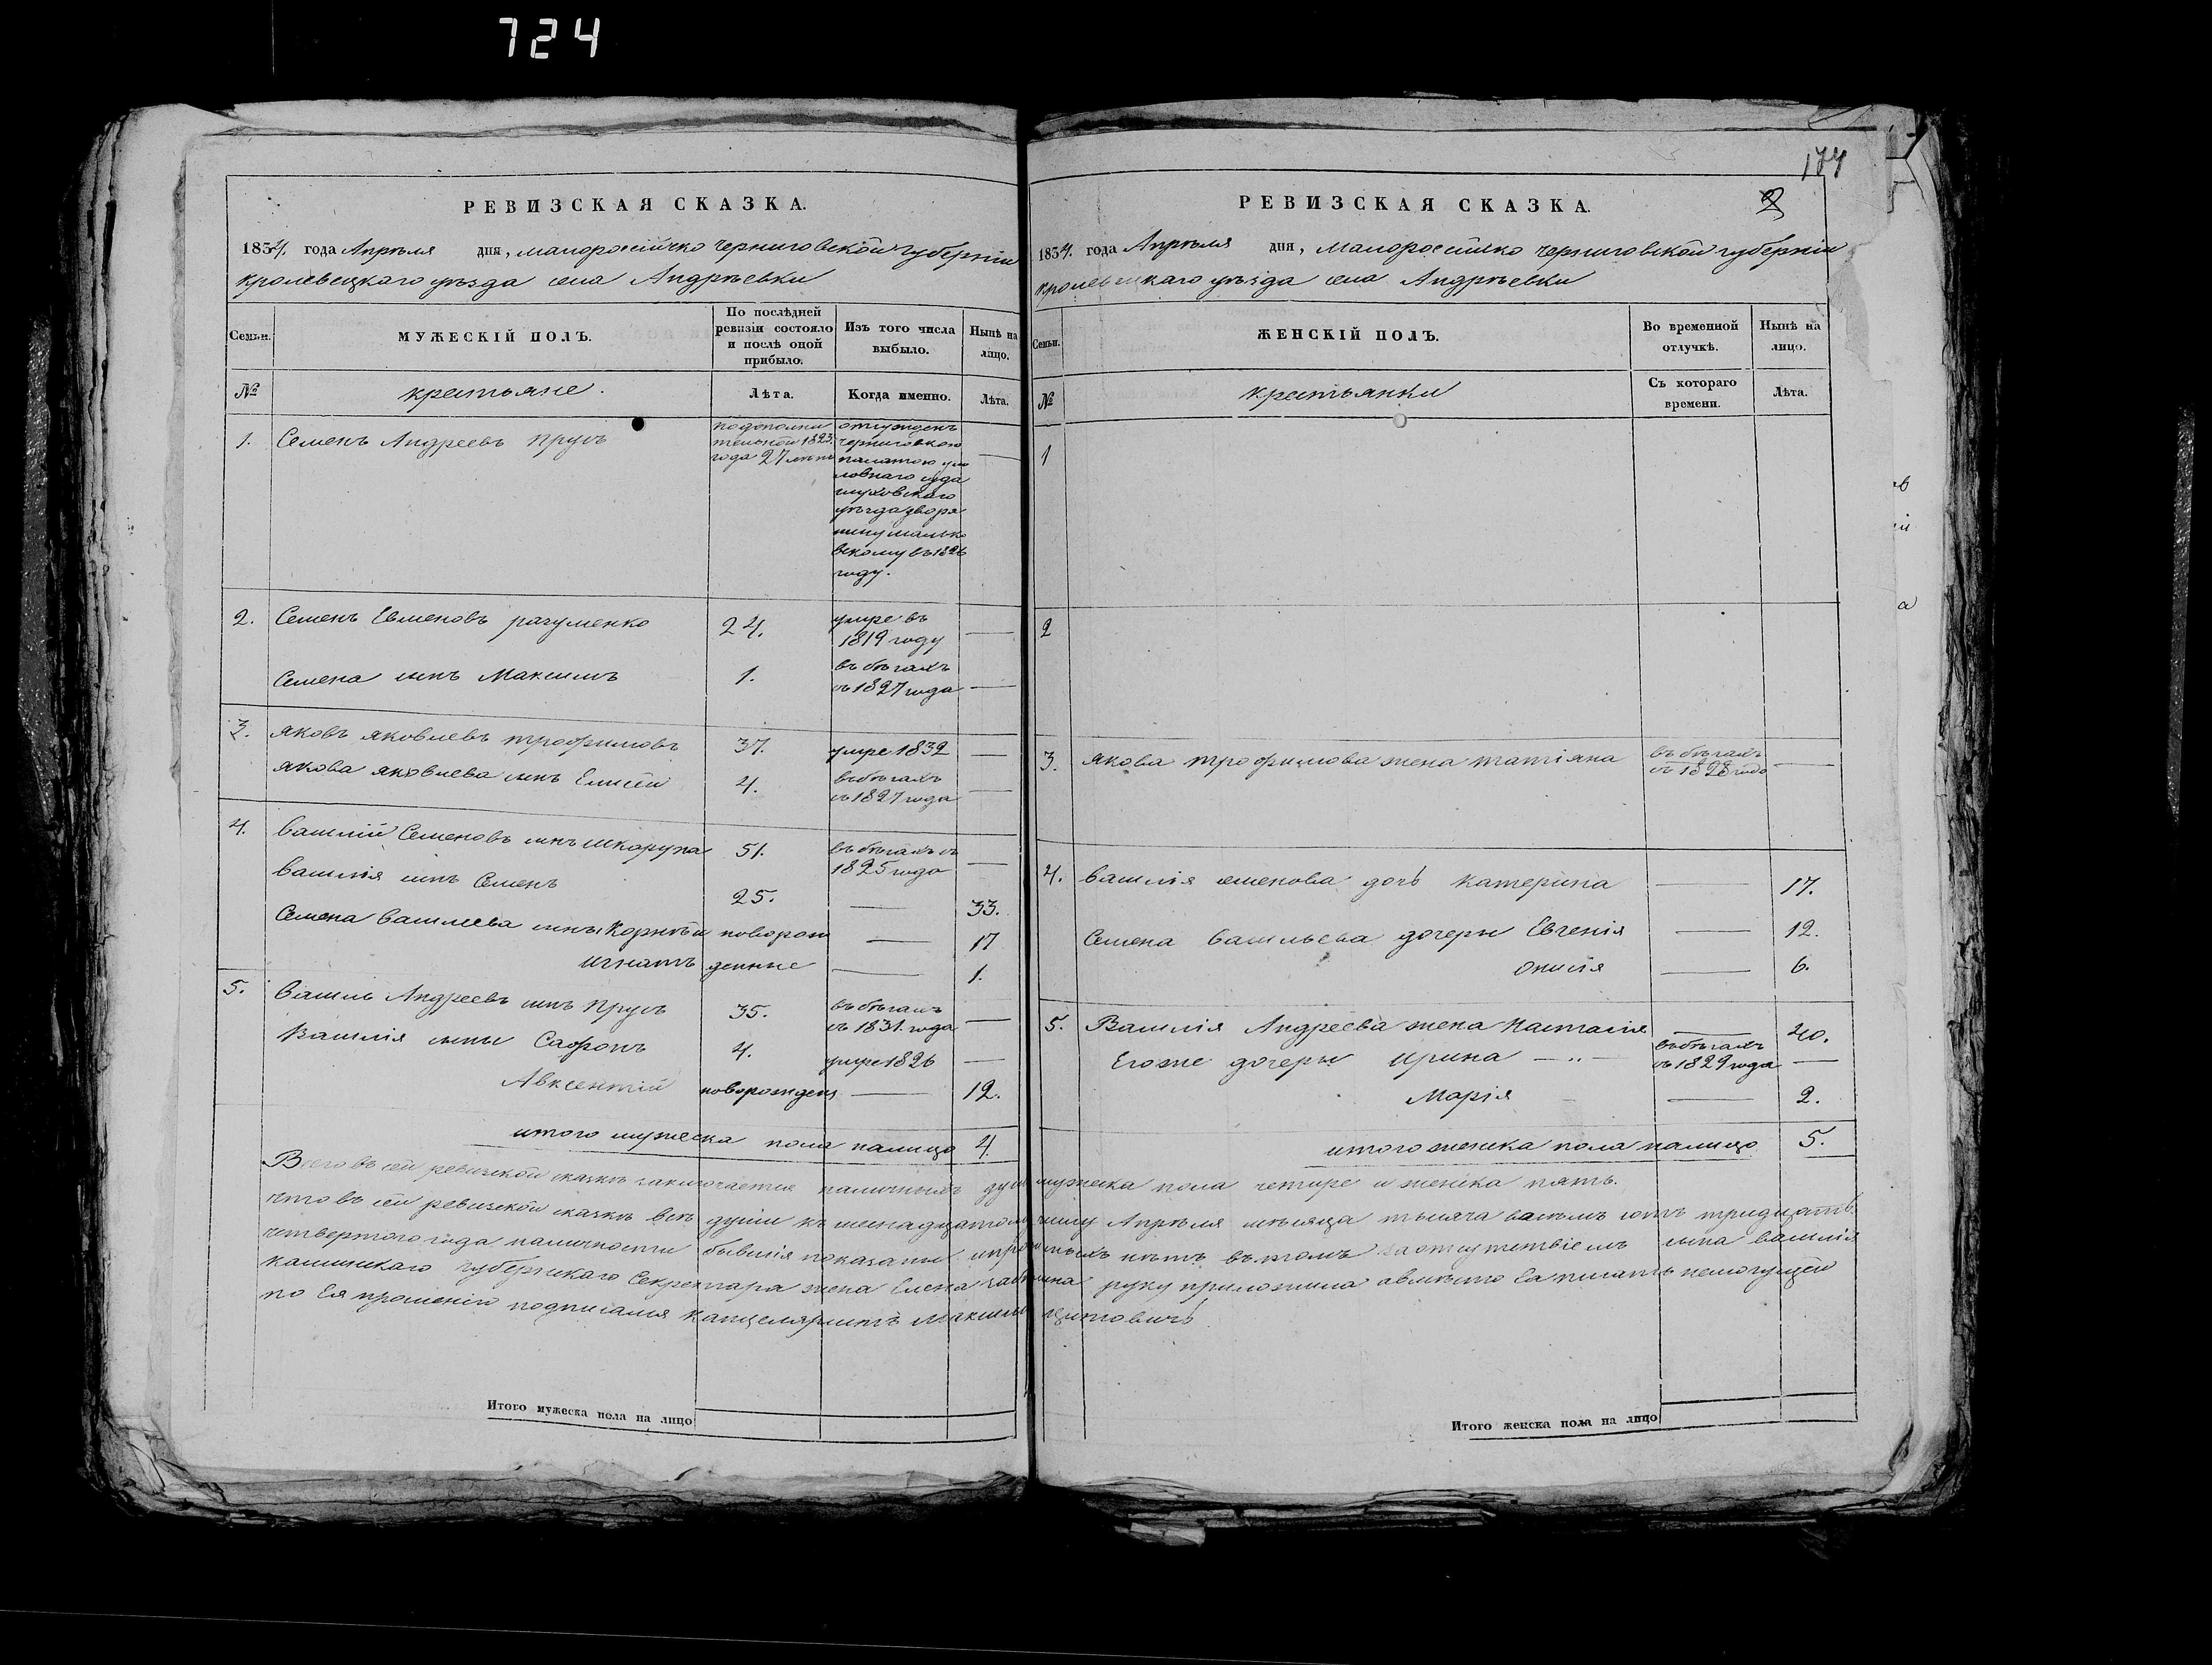 724
РЕВИЗСКАЯ СКАЗКА.
1834. года Апрѣля дня, малороссійско черниговской губерніи
кролевецкаго уѣзда села Андрѣевки
Семьи.
МУЖЕСКІЙ ПОЛЪ.
По послѣдней ревизіи состояло и послѣ оной прибыло.
Изъ того числа выбыло.
Нынѣ на лицо.
№
крестьяне.
Лѣта.
Когда именно.
Лѣта.
1. Семенъ Андреевъ Прусъ
подополни
тельной 1823.
года 27 лѣтъ
отсужденъ
черниговскою
палатою уго
ловнаго суда
глуховскаго
уѣзда дворя
нину
вскому въ 1826
году.
—
2. Семенъ Евменовъ разуменко 24. умре въ 1819 году —
Семена сынъ Максимъ 1. въ бѣгахъ съ 1827 года —
3. яковъ яковлевъ трофимовъ 37. умре 1832 —
якова яковлева сынъ Елисей 4. въ бѣгахъ съ 1827 года —
4. василій Семеновъ сынъ шкарупа 51. въ бѣгахъ съ 1825 года —
василія сынъ Семенъ 25. — 33.
Семена василева сыны Корнѣй новорож — 17
игнатъ денные — 1.
5. василь Андреевъ сынъ Прусъ 35. въ бѣгахъ съ 1831. года —
Василія сыны Сафронъ 4. умре 1826 —
Авксентій новорожден — 12.
итого мужеска пола налицо 4.
174
2
РЕВИЗСКАЯ СКАЗКА.
1834. года Апрѣля дня, малороссійско черниговской губерніи
кролевецкаго уѣзда села Андрѣевки
Семьи.
ЖЕНСКІЙ ПОЛЪ.
Во временной отлучкѣ.
Нынѣ на лицо.
№
крестьянки
Съ котораго времени.
Лѣта.
1
2
3. якова трофимова жена татіяна въ бѣгахъ съ 1828 года —
4. василія семенова дочь катерина — 17.
Семена васильева дочеры Евгенія — 12.
— 6.
5. Василія Андреева жена настасія — 40.
Егоже дочеры ирина — „ — въ бѣгахъ съ 1829 года —
Марія — 2.
итого женска пола налицо 5.
Всего въ сей ревизской сказкѣ заключается наличныхъ душ мужеска пола четире и женска пять.
что въ сей ревизской сказкѣ всѣ души къ числу Апрѣля мѣсяца тысяча восемъ сотъ тридцать
четвертого года наличности бывшія показаны нѣтъ въ томъ за отсутствіемъ сына василія
губернскаго Секретара жена Елена руку приложила авмѣсто Ея писать немогущей
по Ея прошенію подписался канцеляристъ Максимъ
Итого мужеска пола на лицо
Итого женска пола на лицо